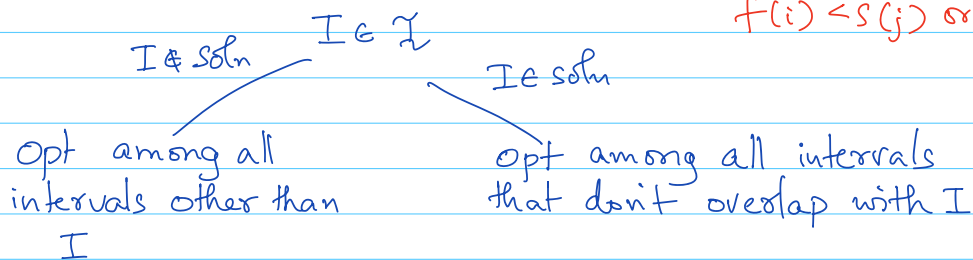 f(i) < s(j) or
I ∈ ℐ
I ∉ soln
I ∈ soln
Opt among all
intervals other than
I
opt among all intervals
that don't overlap with I